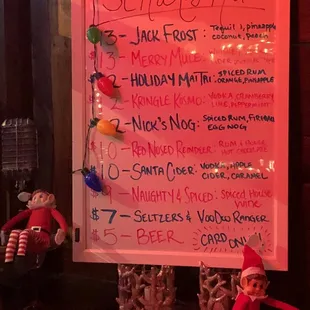 3 - JACK FROST: Tequila, pineapple
coconut, 
13 - MERRY MULE:
2 - HOLIDAY MAI TAI: SPICED RUM
ORANGE, PINEAPPLE
2 - KRINGLE KOSMO: VODKA CRANBERRY
LIME, PEPPERMINT
2 - NICK'S NOG: SPICED RUM, FIREBALL
EGG NOG
10 - RED NOSED REINDEER: RUM &
HOT CHOCOLATE
10 - SANTA CIDER: VODKA, APPLE
CIDER, CARAMEL
$9 - NAUGHTY & SPICED: SPICED HOUSE
WINE
$7 - SELTZERS & VOODOO RANGER
$5 - BEER CARD ONLY!